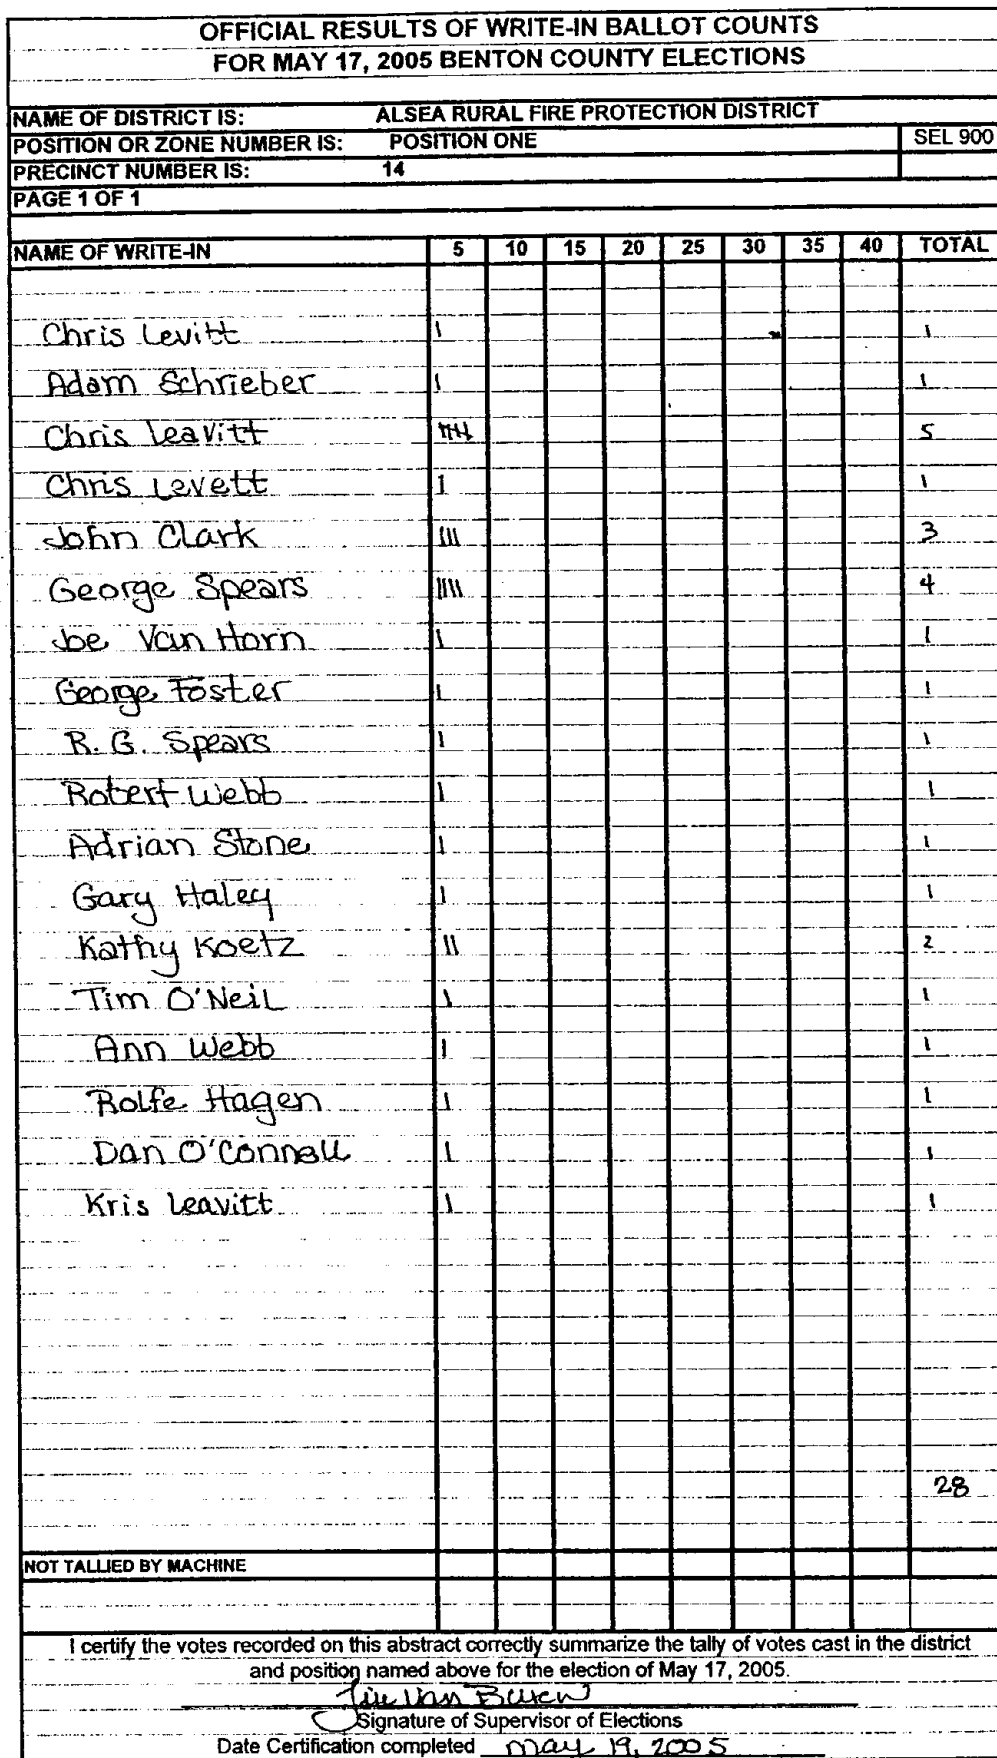 OFFICIAL RESULTS OF WRITE-IN BALLOT COUNTS
FOR MAY 17, 2005 BENTON COUNTY ELECTIONS
NAME OF DISTRICT IS: ALSEA RURAL FIRE PROTECTION DISTRICT
POSITION OR ZONE NUMBER IS: POSITION ONE SEL 900
PRECINCT NUMBER IS: 14
PAGE 1 OF 1
NAME OF WRITE-IN 5 10 15 20 25 30 35 40 TOTAL
Chris Levitt 1
Adam Schrieber 1
Chris Leavitt 5
Chris Levett 1
John Clark 3
George Spears 4
Joe Van Horn 1
George Foster 1
R. G. Spears 1
Robert Webb 1
Adrian Stone 1
Gary Haley 1
Kathy Koetz 2
Tim O'Neil 1
Ann Webb 1
Rolfe Hagen 1
Dan O'Connell 1
Kris Leavitt 1
28
NOT TALLIED BY MACHINE
I certify the votes recorded on this abstract correctly summarize the tally of votes cast in the district
and position named above for the election of May 17, 2005.
Signature of Supervisor of Elections
Date Certification completed May 19, 2005